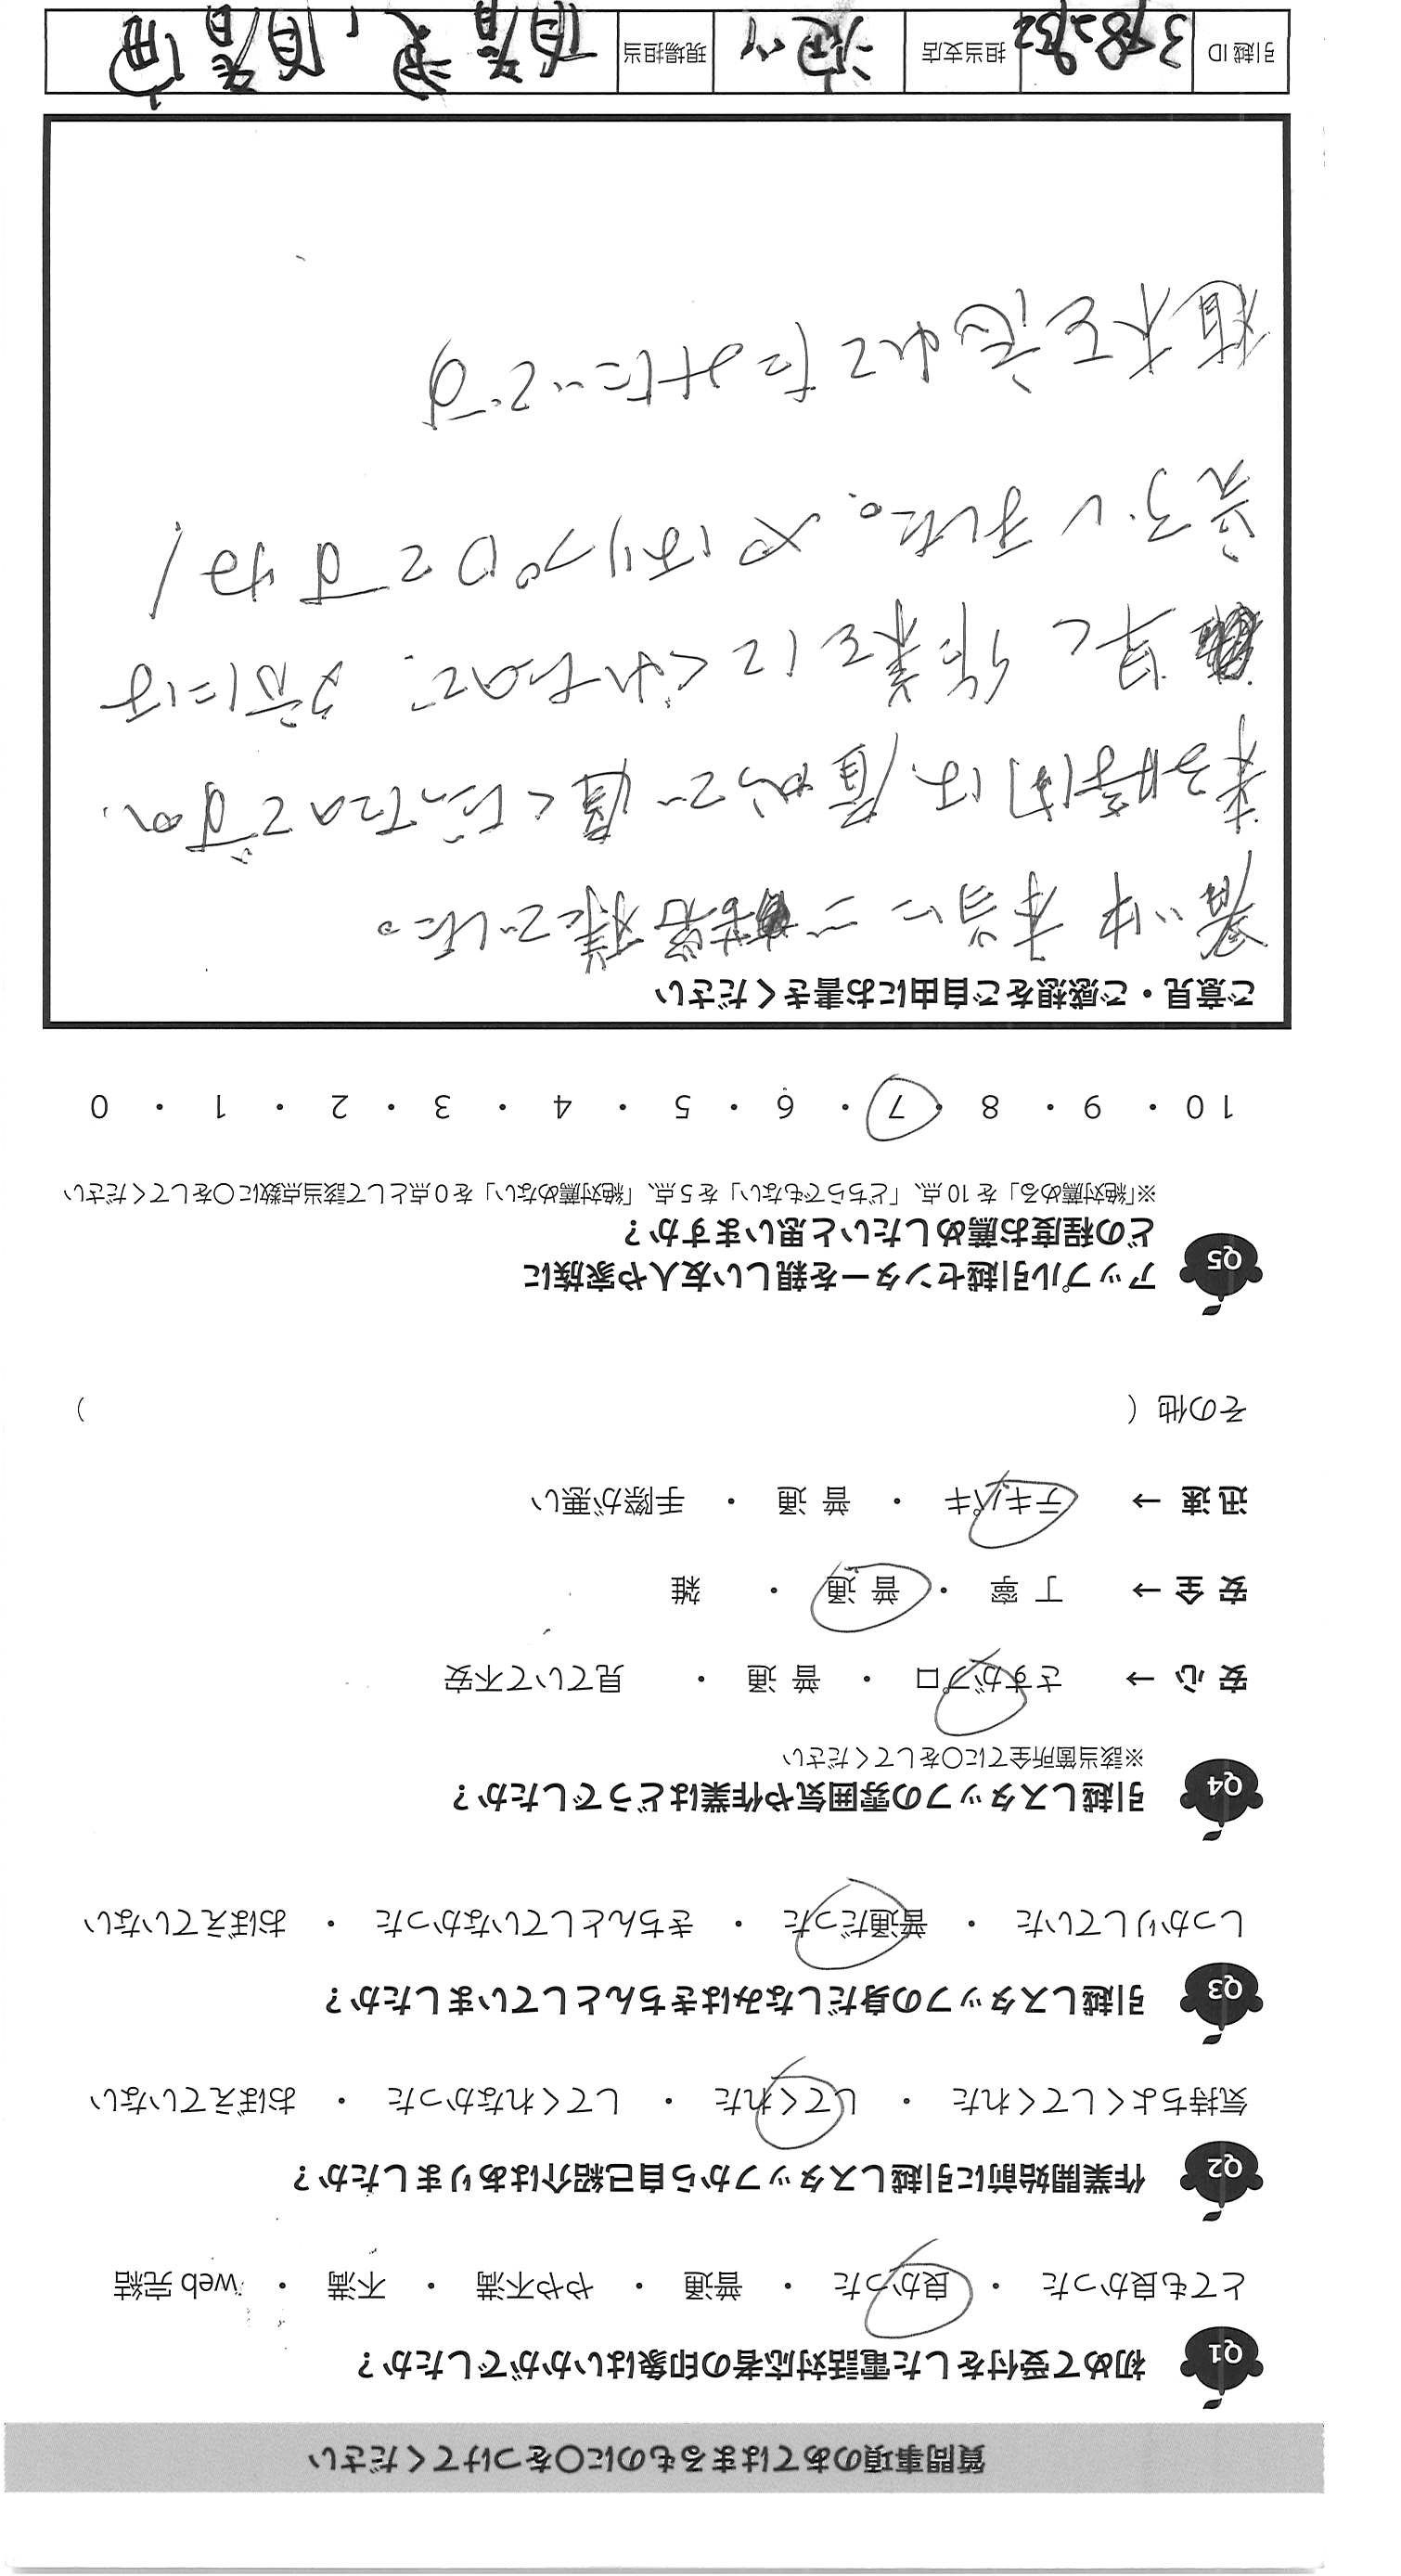 質問事項のあてはまるものに〇をつけてください
Q1 初めて受付をした電話対応者の印象はいかがでしたか？
とても良かった ・ 良かった ・ 普通 ・ やや不満 ・ 不満 ・ web 完結
Q2 作業開始前に引越しスタッフから自己紹介はありましたか？
気持ちよくしてくれた ・ してくれた ・ してくれなかった ・ おぼえていない
Q3 引越しスタッフの身だしなみはきちんとしていましたか？
しっかりしていた ・ 普通だった ・ きちんとしていなかった ・ おぼえていない
Q4 引越しスタッフの雰囲気や作業はどうでしたか？
※該当箇所全てに〇をしてください
安 心 → さすがプロ ・ 普 通 ・ 見ていて不安
安 全 → 丁 寧 ・ 普 通 ・ 雑
迅 速 → テキパキ ・ 普 通 ・ 手際が悪い
その他（ ）
Q5 アップル引越センターを親しい友人や家族に
どの程度お薦めしたいと思いますか？
※「絶対薦める」を 10 点、「どちらでもない」を 5 点、「絶対薦めない」を 0 点として該当点数に〇をしてください
10 ・ 9 ・ 8 ・ 7 ・ 6 ・ 5 ・ 4 ・ 3 ・ 2 ・ 1 ・ 0
ご意見・ご感想をご自由にお書きください
暑い中本当にご苦労様でした。
来る時間は
早く作業をしてくれたので、
ました。やはりプロですね！
植木を忘れてたみたいです
引越 ID 担当支店 現場担当